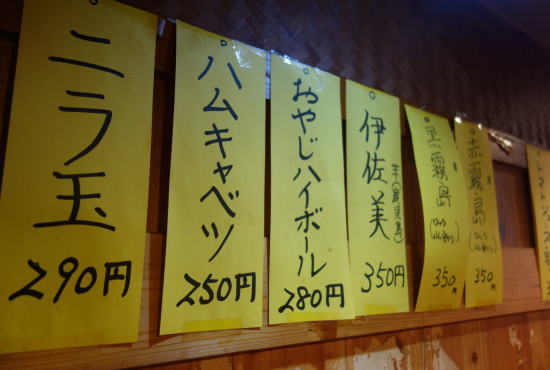 ニラ玉
290円
ハムキャベツ
250円
おやじハイボール
280円
伊佐美
芋(鹿児島)
350円
黒霧島
350
赤霧島
350
トマト